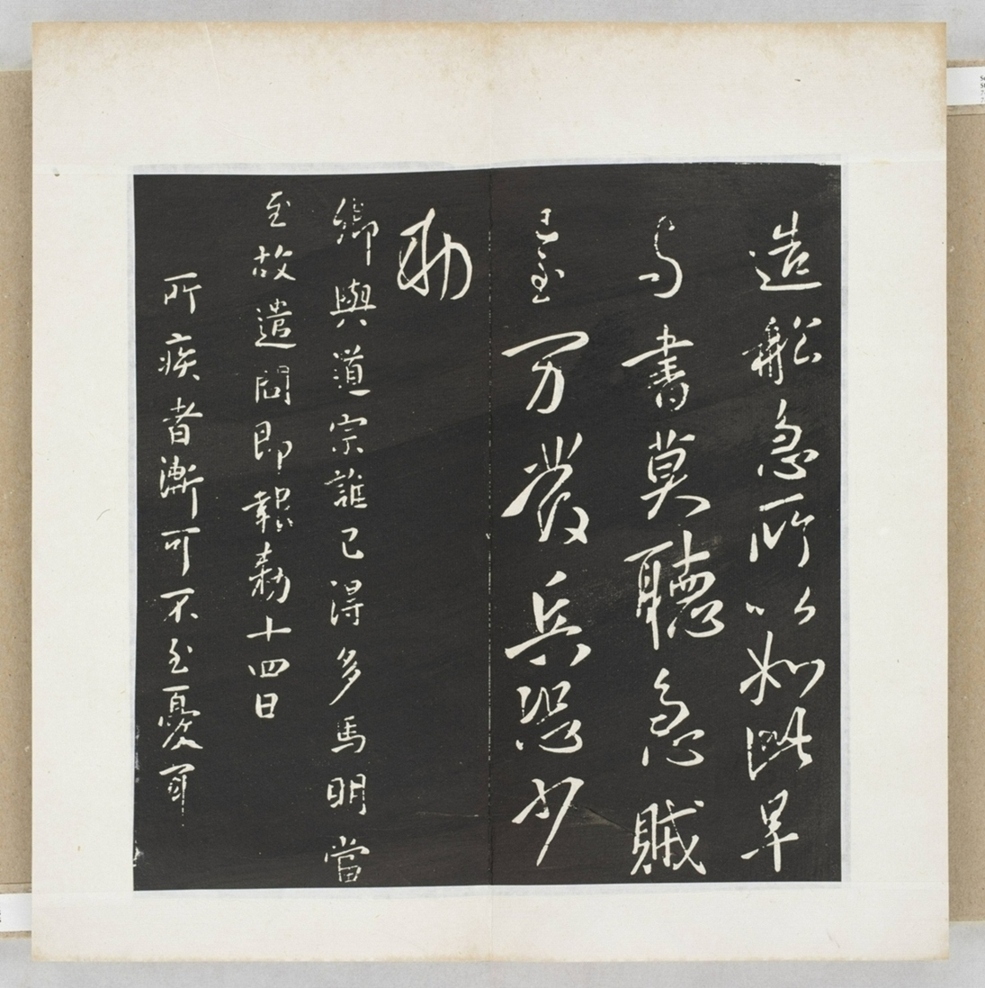 造舩急所以如此早
与書莫聽急賊
已至方發兵恐少
勅
卿與道宗誰已得多馬明當
至故遣問即報勅十四日
所疾者漸可不至憂耳